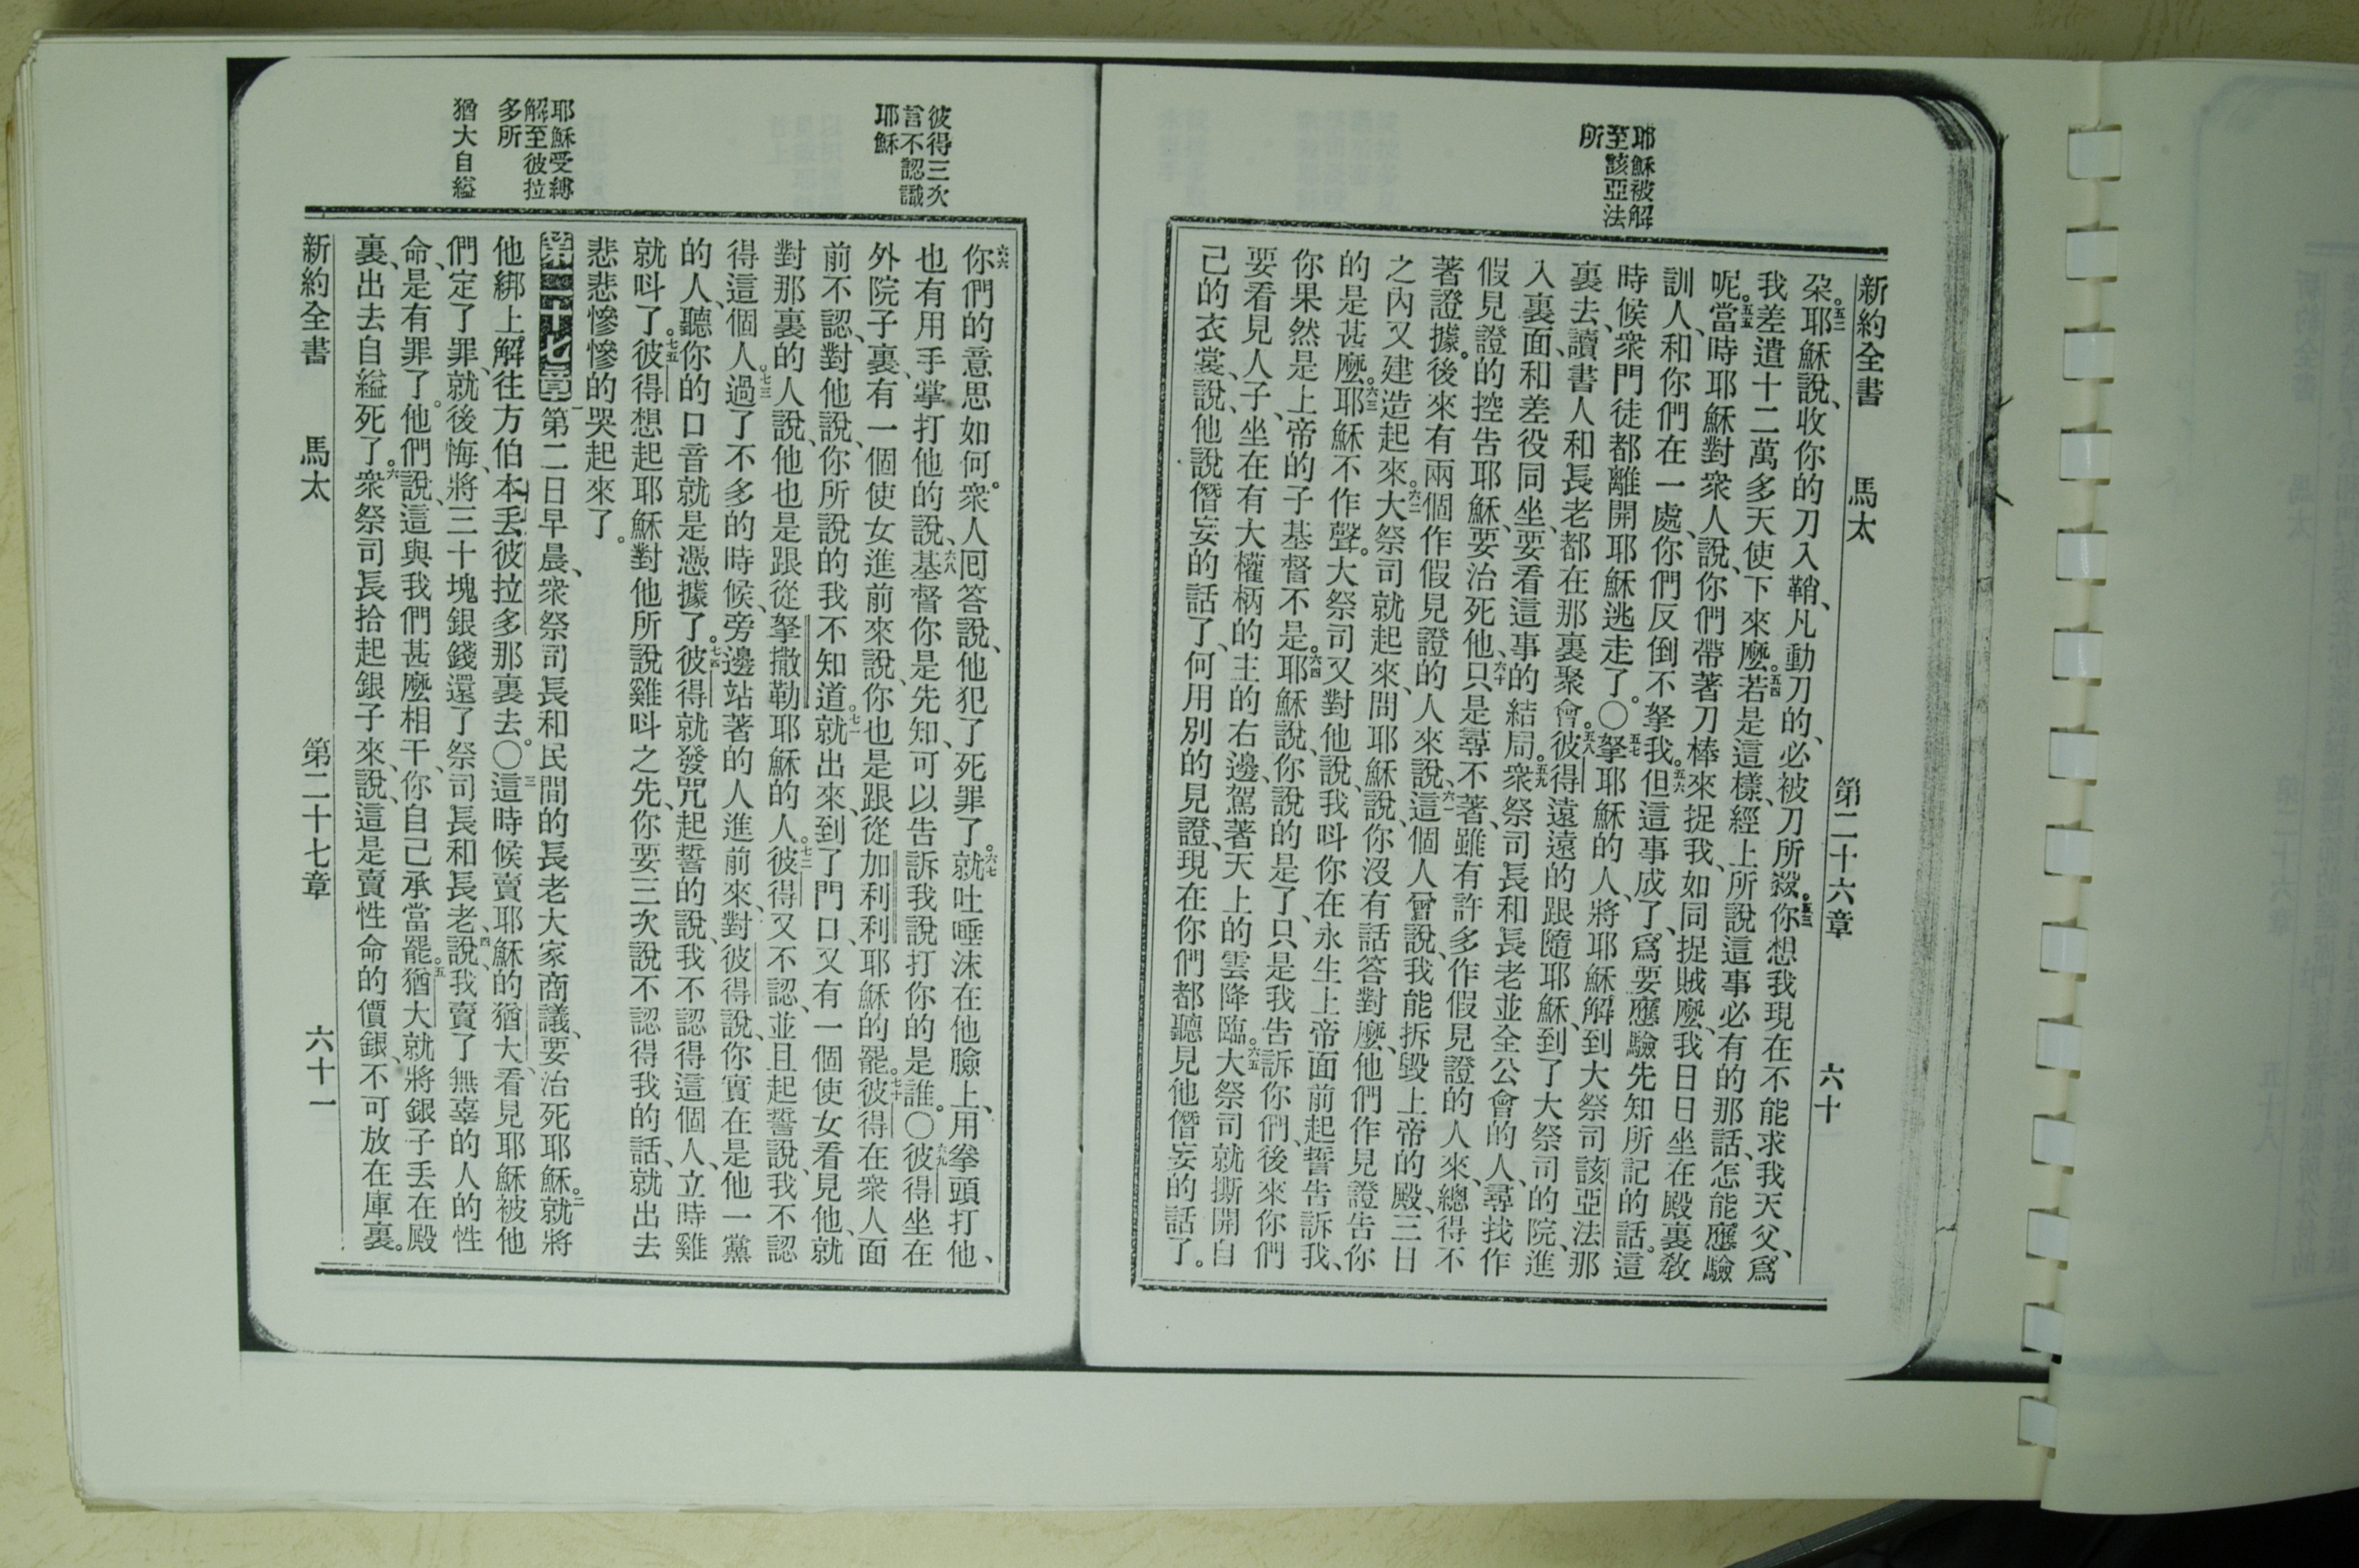 耶穌被解
至該亞法
所
新約全書 馬太 第二十六章 六十
朶。五二耶穌說、收你的刀入鞘、凡動刀的、必被刀所殺。五三你想我現在不能求我天父、爲
我差遣十二萬多天使下來麼。五四若是這樣、經上所說這事必有的那話、怎能應驗
呢。五五當時耶穌對衆人說、你們帶著刀棒來捉我、如同捉賊麼、我日日坐在殿裏敎
訓人、和你們在一處、你們反倒不拏我。五六但這事成了、爲要應驗先知所記的話。這
時候衆門徒都離開耶穌逃走了。〇五七拏耶穌的人、將耶穌解到大祭司該亞法那
裏去、讀書人和長老都在那裏聚會。五八彼得遠遠的跟隨耶穌、到了大祭司的院、進
入裏面、和差役同坐、要看這事的結局。五九衆祭司長和長老並全公會的人、尋找作
假見證的控告耶穌、要治死他、六十只是尋不著、雖有許多作假見證的人來、總得不
著證據。後來有兩個作假見證的人來說、六一這個人曾說、我能拆毀上帝的殿、三日
之內又建造起來。六二大祭司就起來、問耶穌說、你沒有話答對麼、他們作見證告你
的是甚麼。六三耶穌不作聲。大祭司又對他說、我呌你在永生上帝面前起誓告訴我、
你果然是上帝的子基督不是。六四耶穌說、你說的是了、只是我告訴你們、後來你們
要看見人子、坐在有大權柄的主的右邊、駕著天上的雲降臨。六五大祭司就撕開自
己的衣裳、說、他說僭妄的話了、何用別的見證、現在你們都聽見他僭妄的話了。
彼得三次
言不認識
耶穌
六六你們的意思如何。衆人回答說、他犯了死罪了。六七就吐唾沫在他臉上、用拳頭打他、
也有用手掌打他的說、六八基督你是先知、可以告訴我說打你的是誰。〇六九彼得坐在
外院子裏、有一個使女進前來說、你也是跟從加利利耶穌的罷。七十彼得在衆人面
前不認、對他說、你所說的我不知道。七一就出來、到了門口、又有一個使女看見他、就
對那裏的人說、他也是跟從拏撒勒耶穌的人。七二彼得又不認、並且起誓說、我不認
得這個人。七三過了不多的時候、旁邊站著的人進前來、對彼得說、你實在是他一黨
的人、聽你的口音就是憑據了。七四彼得就發咒起誓的說、我不認得這個人、立時雞
就呌了。七五彼得想起耶穌對他所說雞呌之先、你要三次說不認得我的話、就出去
悲悲慘慘的哭起來了。
耶穌受縛
解至彼拉
多所
第二十七章 一第二日早晨、衆祭司長和民間的長老大家商議、要治死耶穌。二就將
他綁上、解往方伯本丟彼拉多那裏去。〇三這時候賣耶穌的猶大、看見耶穌被他
猶大自縊
們定了罪、就後悔、將三十塊銀錢還了祭司長和長老、四說、我賣了無辜的人的性
命、是有罪了。他們說、這與我們甚麼相干、你自己承當罷。五猶大就將銀子丟在殿
裏、出去自縊死了。六衆祭司長拾起銀子來、說、這是賣性命的價銀、不可放在庫裏。
新約全書 馬太 第二十七章 六十一